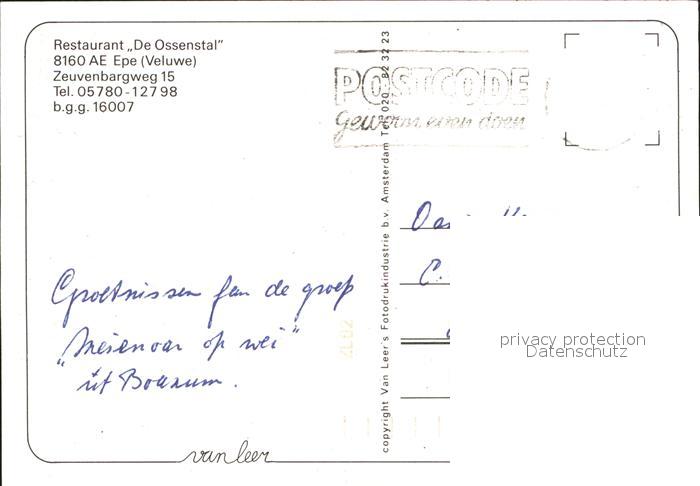 Restaurant „De Ossenstal”
8160 AE Epe (Veluwe)
Zeuvenbargweg 15
Tel. 05780-12798
b.g.g. 16007
POSTCODE
gewoon even doen
copyright Van Leer's Fotodrukindustrie b.v. Amsterdam Tel. 020 - 82 32 23
Groetnissen fan de groep
op wei"
út Boazum.
van leer
privacy protection
Datenschutz